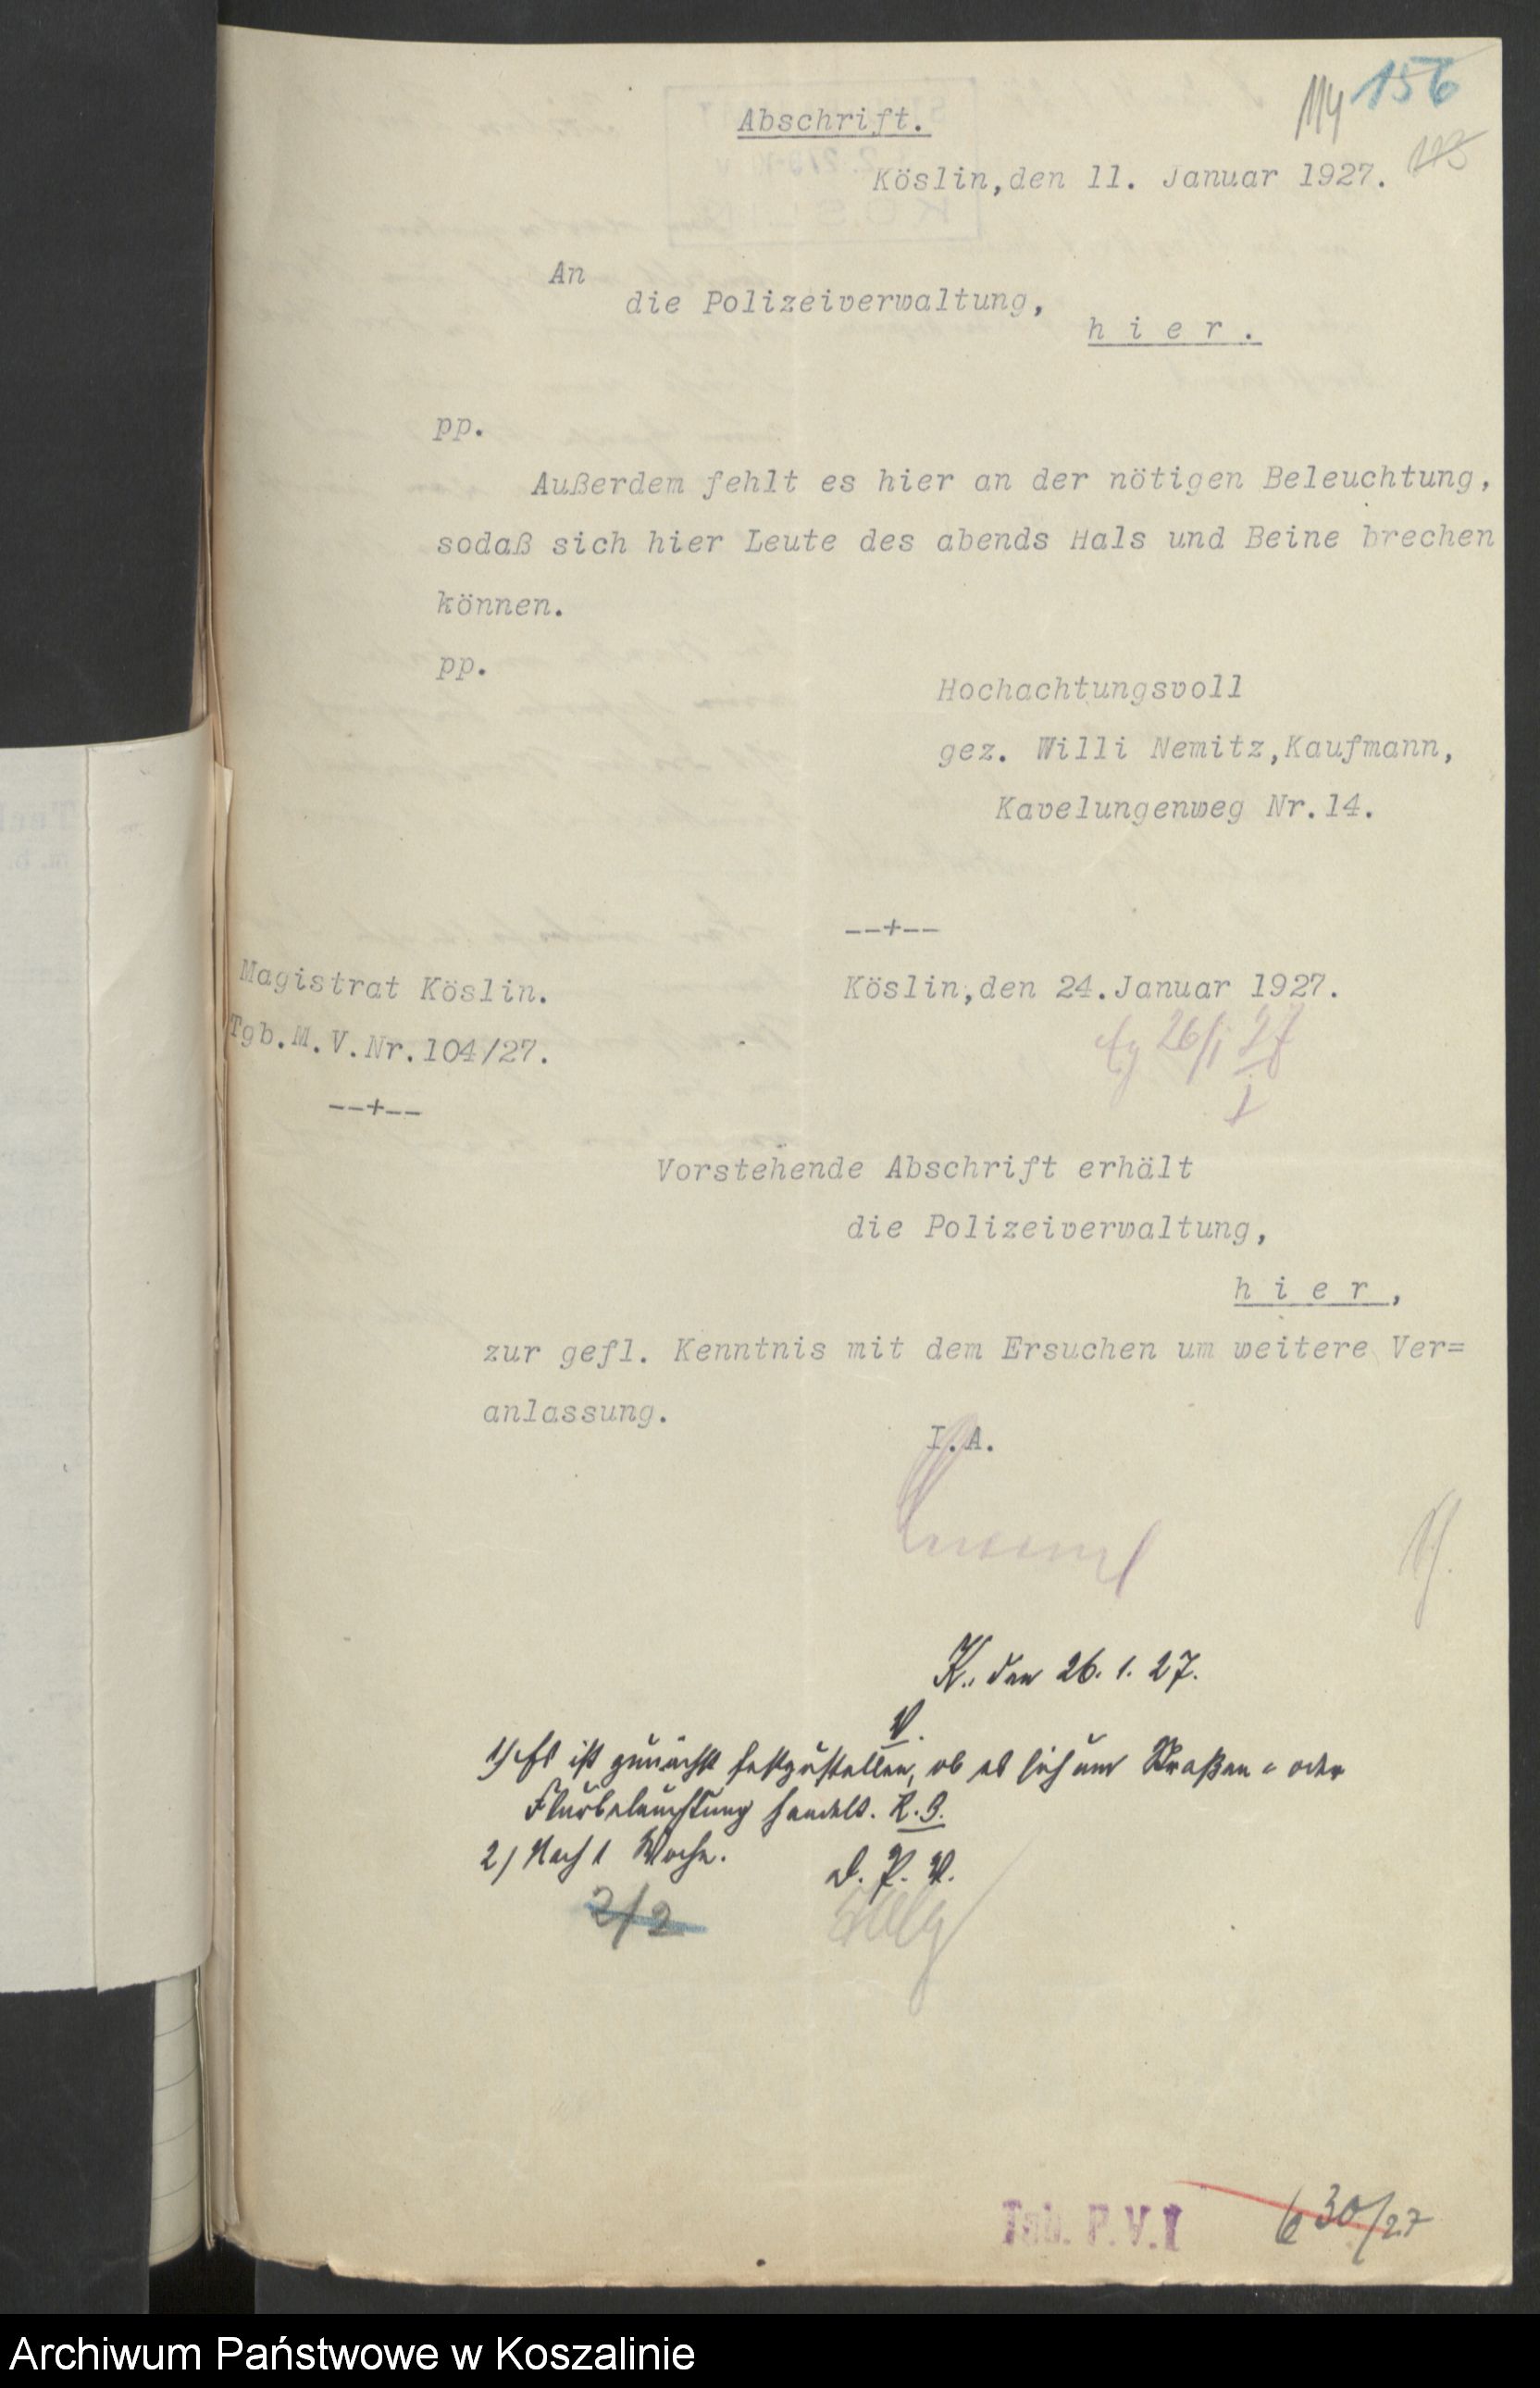 114 156
113
Abschrift.
Köslin,den 11. Januar 1927.
An
die Polizeiverwaltung,
h i e r .
pp.
Außerdem fehlt es hier an der nötigen Beleuchtung,
sodaß sich hier Leute des abends Hals und Beine brechen
können.
pp.
Hochachtungsvoll
gez. Willi Nemitz,Kaufmann,
Kavelungenweg Nr.14.
--+--
Magistrat Köslin.
Köslin,den 24.Januar 1927.
Tgb.M.V.Nr.104/27.
26/1 27
1
--+--
Vorstehende Abschrift erhält
die Polizeiverwaltung,
h i e r ,
zur gefl. Kenntnis mit dem Ersuchen um weitere Ver=
anlassung.
I.A.
K., den 26. 1. 27.
V.
1) Es ist zunächst festzustellen, ob es sich um Straßen = oder
Flurbeleuchtung handelt. R. B.
2) Nach 1 Woche.
D. P. V.
2/2
Tgb. P.V.I 630/27
Archiwum Państwowe w Koszalinie